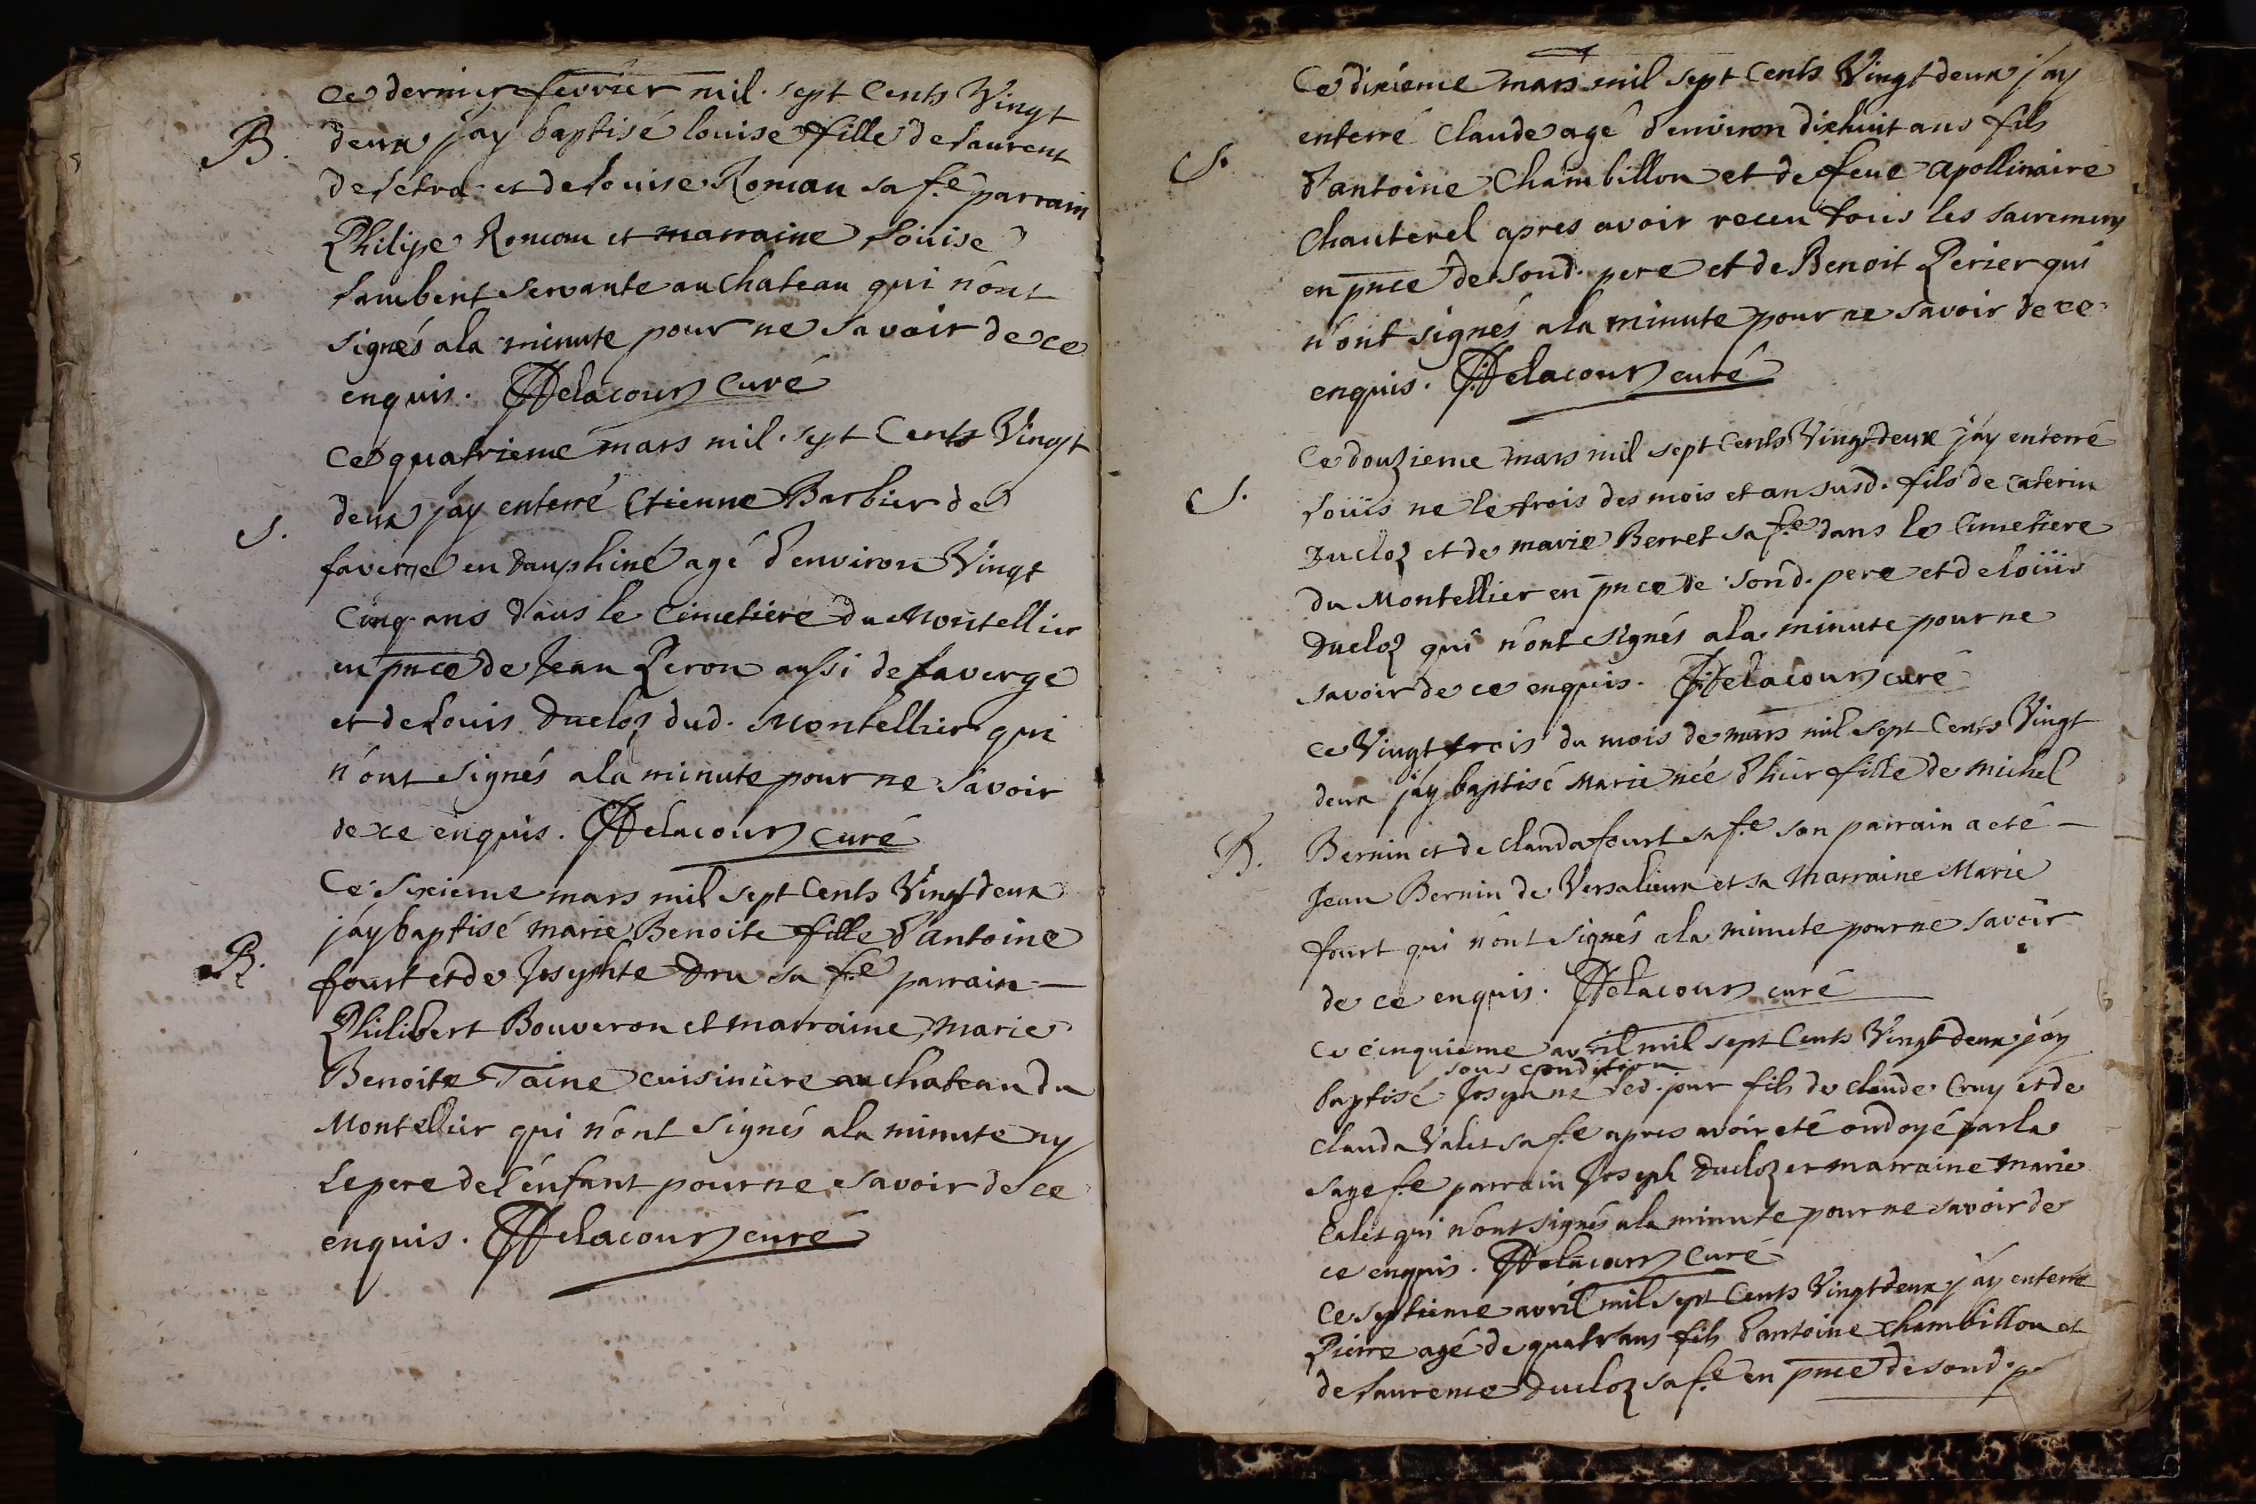 Ce dernier fevrier mil sept Cents Vingt
B. deux jay baptisé louise fille de laurent
et de louise Roman sa f.e parrain
Philipe Roman et marraine louise
lambert servante au chateau qui n'ont
signés a la minute pour ne savoir de ce
enquis. Delacour curé
Ce quatrieme mars mil sept Cents Vingt
S. deux jay enterré Etienne Barbier de
faverge en Dauphiné agé d'environ Vingt
Cinq ans dans le Cimetiere du Montellier
en pnce de Jean Peron aussi de faverge
et de louis Ducloz dud. Montellier qui
n'ont signés a la minute pour ne savoir
de ce enquis. Delacour curé
Ce sixieme mars mil sept Cents Vingt deux
jay baptisé marie Benoite fille d'antoine
B. fourt et de Josephte Dru sa f.e parrain
Philibert Bouveron et marraine Marie
Benoite Taine cuisiniere au chateau du
Montellier qui n'ont signés a la minute ny
le pere de l'enfant pour ne savoir de ce
enquis. Delacour curé
Ce dixieme mars mil sept Cents Vingt deux jay
enterré Claude agé d'environ dixhuit ans fils
S. d'antoine Chambillon et de feue apollinaire
Chanterel apres avoir receu tous les sacremens
en pnce de sond. pere et de Benoit Perier qui
n'ont signés a la minute pour ne savoir de ce
enquis. Delacour curé
Ce douzieme mars mil sept Cents Vingt deux jay enterré
S. loüis ne le trois des mois et an susd. fils de Caterin
Ducloz et de marie Berret sa f.e dans le Cimetiere
du Montellier en pnce de sond. pere et de loüis
Ducloz qui n'ont signés a la minute pour ne
savoir de ce enquis. Delacour curé
Ce Vingt trois du mois de mars mil sept Cents Vingt
deux jay baptisé Marie née d'hier fille de Michel
B. Bernin et de Clauda fourt sa f.e son parrain a eté
Jean Bernin de Versalieux et sa Marraine Marie
fourt qui n'ont signés a la minute pour ne savoir
de ce enquis. Delacour curé
Ce cinquieme avril mil sept Cents Vingt deux jay
sous condition
baptisé Joseph né led. jour fils de Claude Cruy et de
Clauda Valet sa f.e apres avoir eté ondoyé par la
sage f.e parrain Joseph Ducloz et marraine Marie
qui n'ont signés a la minute pour ne savoir de
ce enquis. Delacour curé
Ce septieme avril mil sept Cents Vingt deux jay enterré
Pierre agé de quatr'ans fils d'antoine Chambillon et
de laurence Ducloz sa f.e en pnce de sond. p